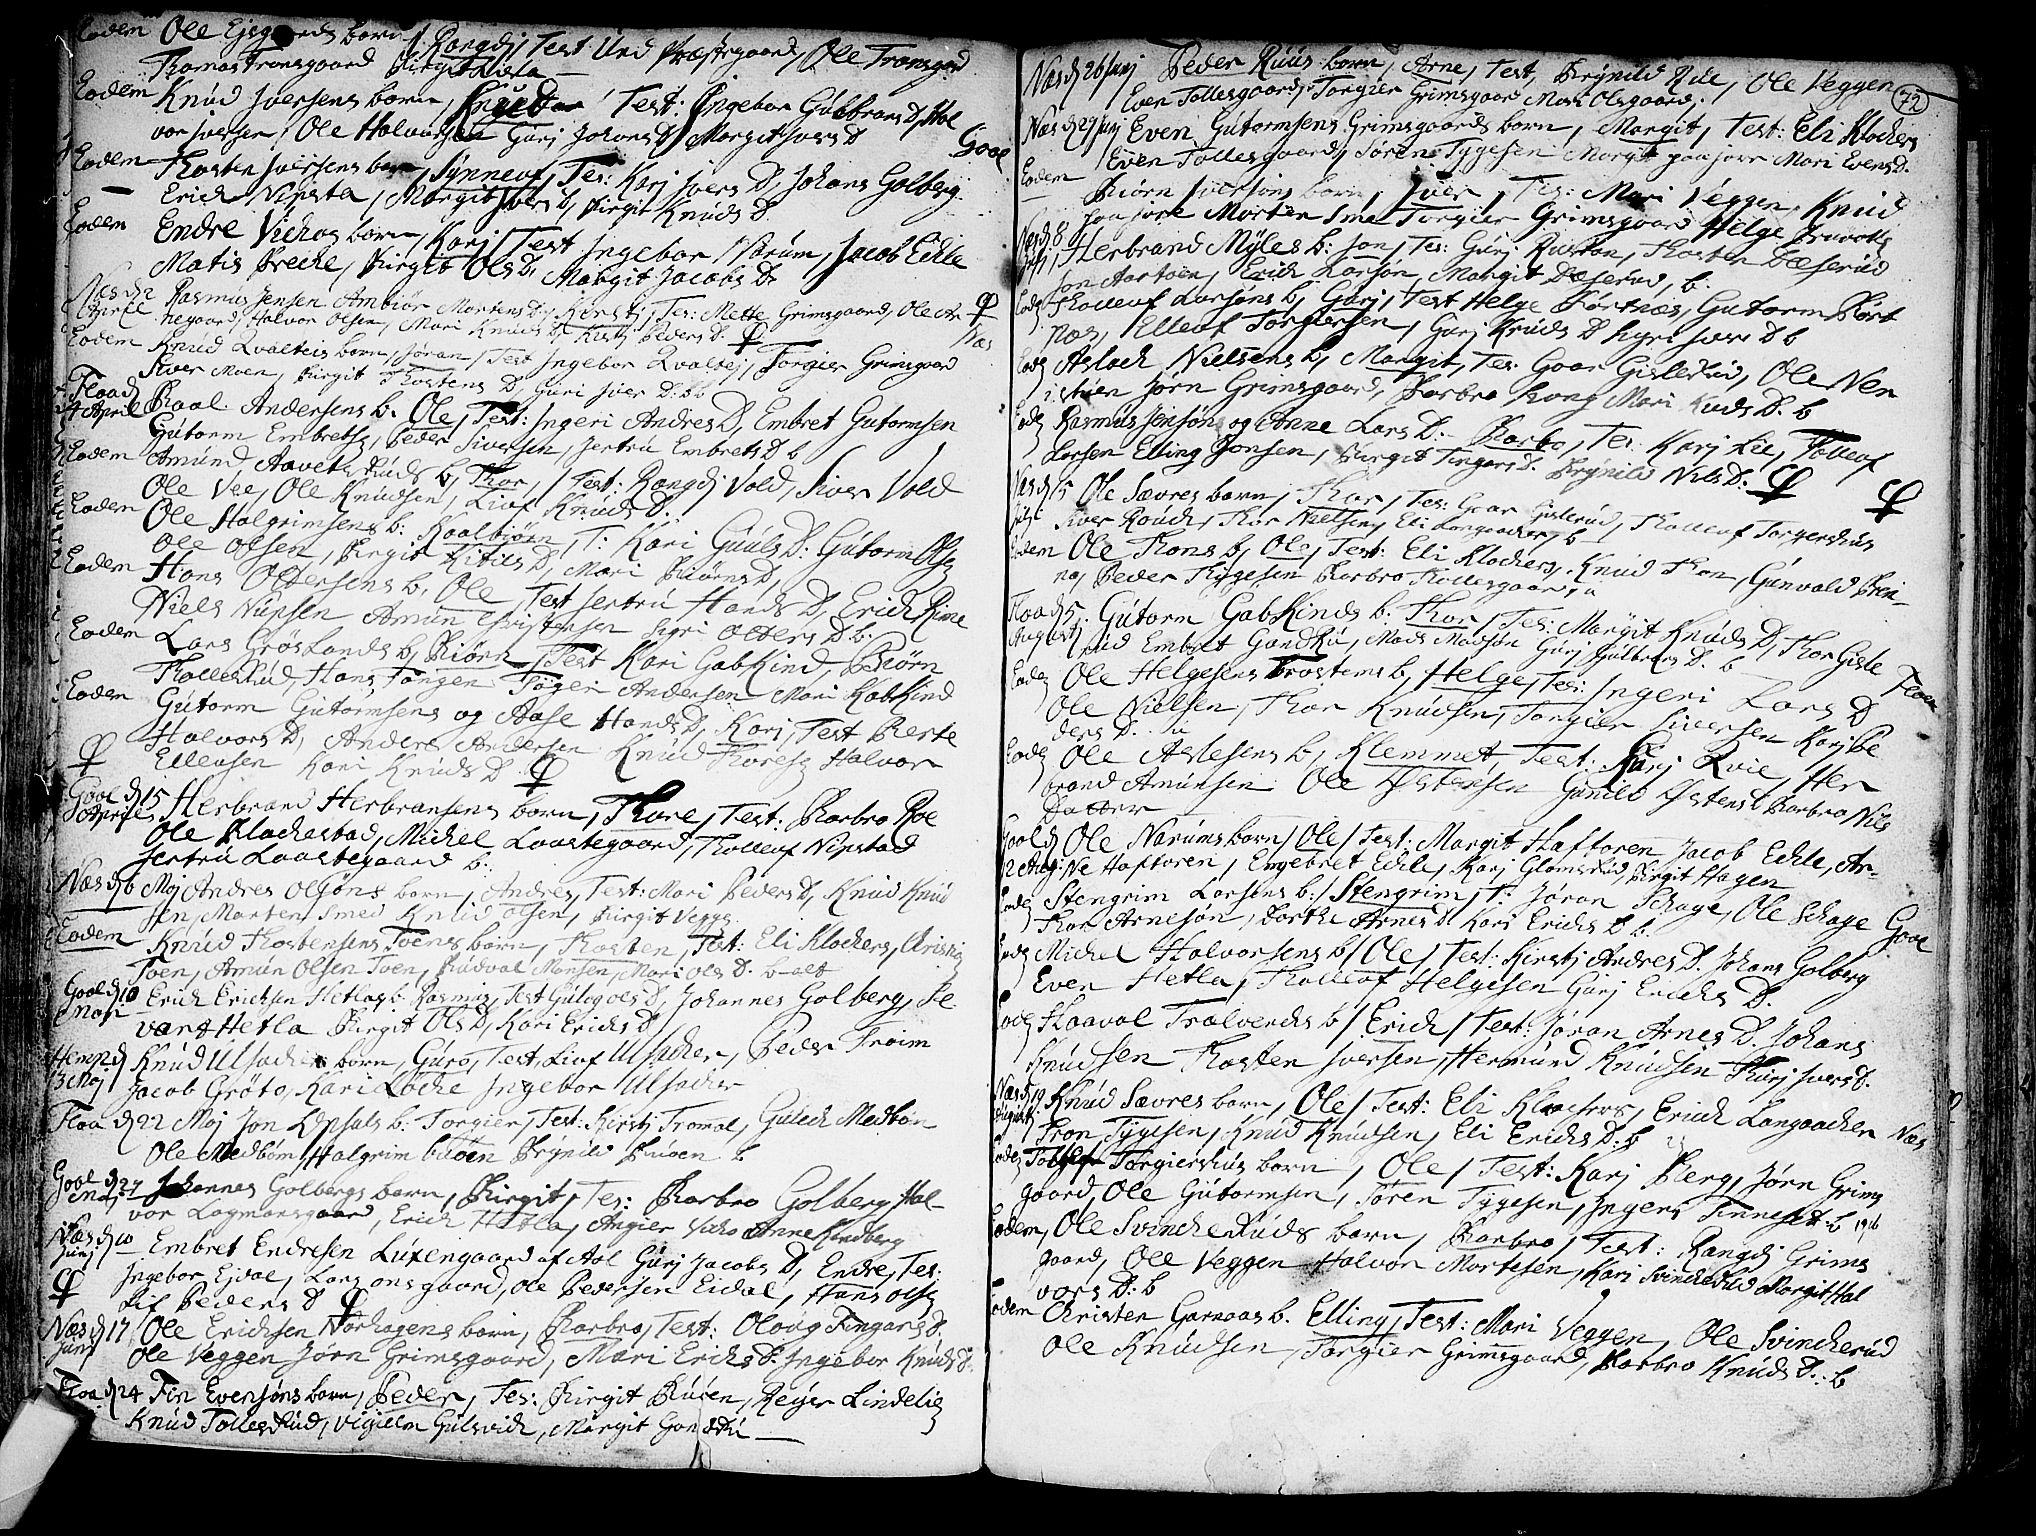 Eodem Ole Ejegaards barn / Rangdj / Test: Und Præstegaard, Ole Transgard
Thomas Transgaard Birgit
Eodem Knud Jversens barn, Knud Test: Ingebor Gulbrans D, Hal
vor Jversen, Ole Halvorsen Gurj Johans D, Margit Jvers D
Gool
Eodem Thosten Jversens barn, Synneuf, Tes: Karj Jvers D, Johans Golberg
Erich Nipsta, Margit Jvers D, Birgit Knuds D.
Eodem Endre Vichos barn, Karj / Test Ingebor Narum, Jacob Eckle
Matis Breche, Birgit Ols D, Margit Jacobs D.
Næs d 2 April Rasmus Jensen Ambiør Mortens D, Kirstj, Tes: Mette Grimsgaard, Ole Ar
negaard, Halvor Olsen, Mari Knuds D, Kirstj Peders D.
Næs
Eodem Knud Qvalteis barn, Jøran, Test Ingebor Qvaltej, Torgier Grimsgaard
Siver Moen, Birgit Thostens D, Guri Jver D. b
Flaa d 4 April Paal Andersens b. Ole, Test: Ingeri Andres D, Embret Gutormsen
Gutorm Embretsø, Peder Siversen, Jertru Embrets D b
Eodem Amund Aavetsruds b, Thor, Test: Rangdj Vold, Siver Vold
Ole Vee, Ole Knudsen, Liuf Knuds D.
Eodem Ole Halgrimsens b: Raalbiørn, T: Kari Guuls D: Gutorm Olsø
Ole Olsen, Birgit Kitils D, Mari Biørns D,
Eodem Hans Oldersens b, Ole Test Jertru Hands D, Erich Rime
Niels Nupsen Amun Christensen Sigri Olders D b.
Eodem Lars Grøslands b, Biørn, Test Kari Gabkind, Biørn
Thollesrud, Hans Tangen Tøger Andersen Mari Kabkind
Eodem Gutorm Gutormsens og Aase Hands D, Karj, Test Berte
Halvors D, Anders Andersen Knud Thoresø Halvor
Ellensen Kari Knuds D.
Gool d 15 April Herbrand Herbransens barn, Thore, Test: Barbro Roe
Ole Klochestad, Michel Laastegaard, Tholleuf Nipstad
Jertru Laastegaard b:
Næs d 6 Maj Andres Olsøns barn, Andres, Test: Mari Peders D, Knud Knud
sen, Morten Smed Knud Olsen, Birgit Vegge
Eodem Knud Thostensens Toens barn, Thosten, Test: Eli Klochers, Christi
Toen, Amun Olsen Toen, Rudval Monsen, Mari Ols D. b
Gool d 10 Maj Erich Erichsen Hetlas b. Rasmus, Test Gulog Ols D, Johannes Golberg, Si
vart Hetla Birgit Ols D, Kari Erichs D
Hemsd d 13 Maj Knud Ulsachers barn, Guro, Test, Liuf Ulsacher, Peder Froim
Jacob Grøto, Kari Løche Ingebor Ulsacher
Flaa d 22 Maj Jon Opsals b. Torgier, Test: Kirstj Tromal, Gulech Medbøn
Ole Medbøn, Halgrim buøen Brynild Bruøen b
Gool d 27 Maj Johannes Golbergs barn, Birgit, Tes: Barbro Golberg, Hal
vor Lagmansgaard, Erich Hetla, Angier Vicho Anne Kindberg
Næs d 10 Junj Embret Endresen Luxengaard af Aal Gurj Jacobs D, Endre, Tes:
Ingebor Ejdal, Lars onsgaard, Ole Pedersen Eidal, Hans Olsø
Sif Peders D
Næs d 17 Junj Ole Erichsen Norhagens barn, Barbro, Test: Oloug Tingars D.
Ole Veggen Jørn Grimsgaard, Mari Erichs D. Ingebor Knuds D.
Flaa d 24 Fin Evensøns barn, Peder, Tes: Birgit Buren, Reyer Lindelie
Knud Tollesrud, Vigillm Gulsvich, Margit Gandru
72
Næs d 26 Junj Peder Ruus barn, Arne, Test, Brynild Rue, Ole Veggen
Even Tollesgaard, Torgier Grimsgaar Mari Olsgaard.
Næs d 29 Junj Even Gutormsens Grimsgaards barn, Margit, Test: Eli Klochers
Even Tollesgaard, Søren Tygesen Margit paa jorr Mari Evens D.
Eodem Biørn Jversøns barn, Jver, Tes: Mari Veggen, Knud
paa jore Morten Sme Torgier Grimsgaard Helge Bruvolts
Næs d 8 Julj, Herbrand Myles b: Jon, Tes: Gurj Rusten, Thosten Dæserud
Jon Aartoen, Erich Larsøn, Margit Dæserud, b.
Eode Tholleuf Larsøns b, Gurj, Test Helge Børtnæs, Gutorm Bört
næs, Elleuf Torgiersen, Gurj Knuds D Sigri Jvers D b
Eode Aslach Nielsens b, Margit, Tes: Goar Gislerud, Ole Nen
istuen Jørn Grimsgaard, Barbro Kong Mari Kuds D. b
Eode Rasmus Jensøn og Anne Lars D. Barbo, Tes: Karj Lie, Tolleuf
Larsen Elling Jonsen, Birgit Tingars D. Brynild Nils D.
Næs d 15 Julj Ole Sævres barn, Thor, Tes: Goar Gislerud, Tholleuf Torgershus
Siver Rouch, Thor Nielsen, Eli Langaacher, b
Eodem Ole Thons b, Ole, Test: Eli Klochers, Knud Thon, Gunvald Bren
no, Peder Thygesen Barbro Thollesgaard,
Flaa d 5 Augustj Gutorm Gabkinds b. Thor, Tes: Margit Knuds D, Thor Gisle
rud Embret Gandru, Mads Madsøn Gurj Gulbrans D. b
Flaa
Eode Ole Helgesens Trostems b, Helge, Tes: Ingeri Lars D
Ole Nielsen, Thor Knudsen, Torgier Siversen Karj Pe
ders D.
Eode Ole Aslesens b, Klemmet, Test: Karj Qvie, Her
brand Amunsen Ole Østensen Gunild Østens D Barbro Nils
Datter
Gool d 12 Aug: Ole Narums barn / Ole / Test: Margit Haftoren Jacob Eckle, Ar
ne Haftoren, Engebret Eckle, Karj Glomsrud, Birgit Hagen
Eode Stengrim Larsens b: / Stengrim, T: Jøran Schage, Ole Schage
Thor Arnesøn, Dorthe Arnes D Kari Erichs D b.
Gool
Eode Michel Halvorsens b / Ole / Test: Kirstj Andres D. Johans Golberg
Even Hetla, Tholleuf Helgesen Gurj Erichs D.
Eode Haavol Trælvenchs b / Erich / Test: Jøran Arnes D. Johans
Knudsen Thosten Jversen, Hermund Knudsen Thurj Jvers D.
Næs d 19 Augustj Knud Sævres barn, Ole / Test: Eli Klochers, Erich Langaacher
Fron Tygesen, Knud Knudsen, Eli Erichs D: b
Næs
Eode Torgiershus barn, Ole / Test: Karj Berg, Jørn Grims
gaard, Ole Gutormsen, Søren Tygesen, Ingeri Tinneset b
Eodem, Ole Svincheruds barn, Barbro, Test: Rangdj Grims
gaard, Ole Veggen Halvor Mortesen, Kari Svincherud Margit Hal
vors D: b
Eodem Christen Garnaas b. Elling, Test: Mari Veggen, Ole Svincherud
Ole Knudsen, Torgier Grimsgaard, Barbro Knuds D.: b